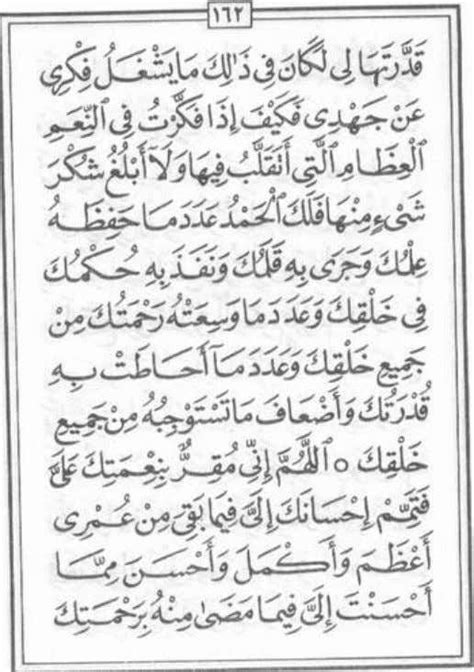 ١٦٢
قَدَّرْتَهَا لِي لَكَانَ فِي ذَٰلِكَ مَا يَشْغَلُ فِكْرِى
عَنْ جَهْدِى فَكَيْفَ إِذَا فَكَّرْتُ فِي ٱلنِّعَمِ
ٱلْعِظَامِ ٱلَّتِي أَتَقَلَّبُ فِيهَا وَلَآ أَبْلُغُ شُكْرَ
شَىْءٍ مِنْهَا فَلَكَ ٱلْحَمْدُ عَدَدَ مَا حَفِظَهُ
عِلْمُكَ وَجَرَى بِهِ قَلَمُكَ وَنَفَذَ بِهِ حُكْمُكَ
فِي خَلْقِكَ وَعَدَدَ مَا وَسِعَتْهُ رَحْمَتُكَ مِنْ
جَمِيعِ خَلْقِكَ وَعَدَدَ مَآ أَحَاطَتْ بِهِ
قُدْرَتُكَ وَأَضْعَافَ مَا تَسْتَوْجِبُهُ مِنْ جَمِيعِ
خَلْقِكَ ٥ ٱللَّهُمَّ إِنِّي مُقِرٌّ بِنِعْمَتِكَ عَلَىَّ
فَتَمِّمْ إِحْسَانَكَ إِلَىَّ فِيمَا بَقِىَ مِنْ عُمْرِى
أَعْظَمَ وَأَكْمَلَ وَأَحْسَنَ مِمَّا
أَحْسَنْتَ إِلَىَّ فِيمَا مَضَىٰ مِنْهُ بِرَحْمَتِكَ